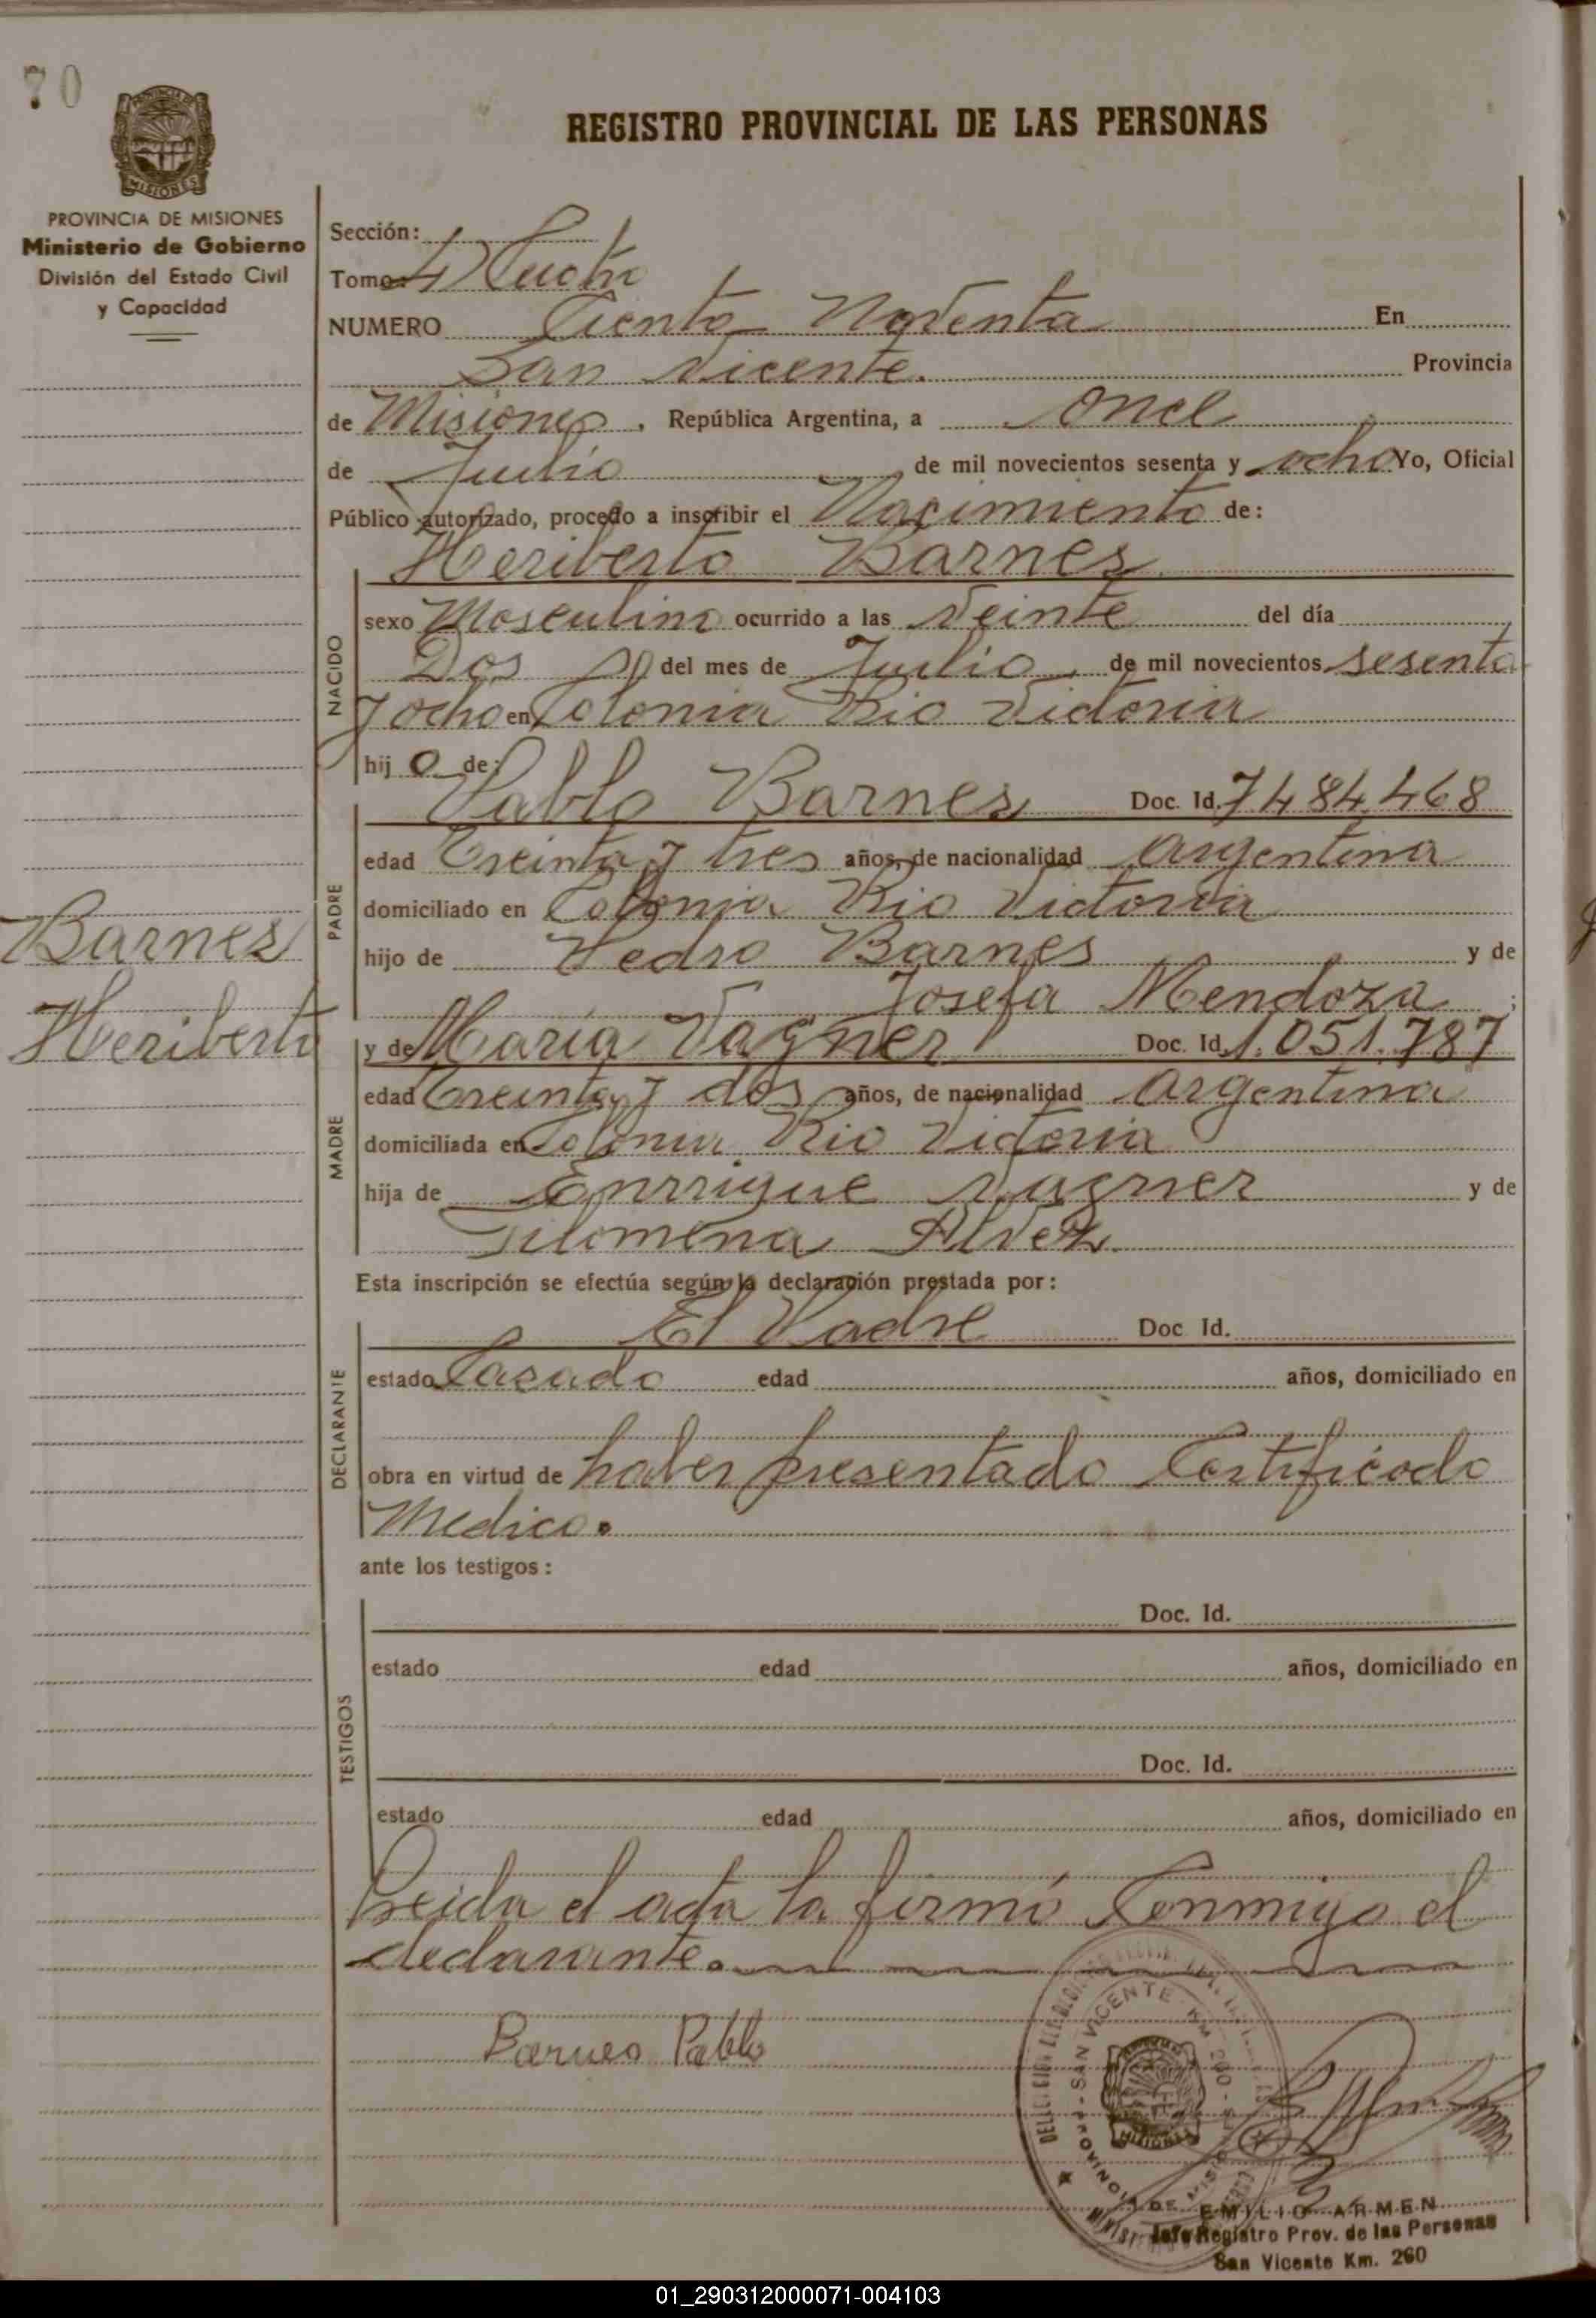 70
PROVINCIA DE MISIONES
Ministerio de Gobierno
División del Estado Civil
y Capacidad
REGISTRO PROVINCIAL DE LAS PERSONAS
Sección:
Tomo: 4
NUMERO Ciento Noventa En
San Vicente. Provincia
de Misiones, República Argentina, a once
de Julio de mil novecientos sesenta y ocho Yo, Oficial
Público autorizado, procedo a inscribir el Nacimiento de:
Heriberto Barnes
NACIDO
sexo Masculino ocurrido a las Veinte del día
Dos del mes de Julio de mil novecientos sesenta
y ocho en Colonia Rio Victoria
hij o de:
PADRE
Pablo Barnes Doc. Id. 7484.468
edad Treinta y tres años, de nacionalidad argentina
domiciliado en Colonia Rio Victoria
hijo de Pedro Barnes y de
Josefa Mendoza ;
MADRE
y de María Vagner Doc. Id. 1.051.787
edad Treinta y dos años, de nacionalidad argentina
domiciliada en Colonia Rio Victoria
hija de Enrrique Vagner y de
Filomena Alvez
Esta inscripción se efectúa según la declaración prestada por:
DECLARANTE
El Padre Doc Id.
estado Casado edad años, domiciliado en
obra en virtud de haber presentado Certificado
Medico.
ante los testigos:
TESTIGOS
Doc. Id.
estado edad años, domiciliado en
Doc. Id.
estado edad años, domiciliado en
Leida el acta la firmó Conmigo el
declarante.
Barnes Pablo
Barnes
Heriberto
SAN VICENTE - KM 260 - PROVINCIA DE MISIONES
MISIONES
EMILIO ARMEN
Jefe Registro Prov. de las Personas
San Vicente Km. 260
01_290312000071-004103